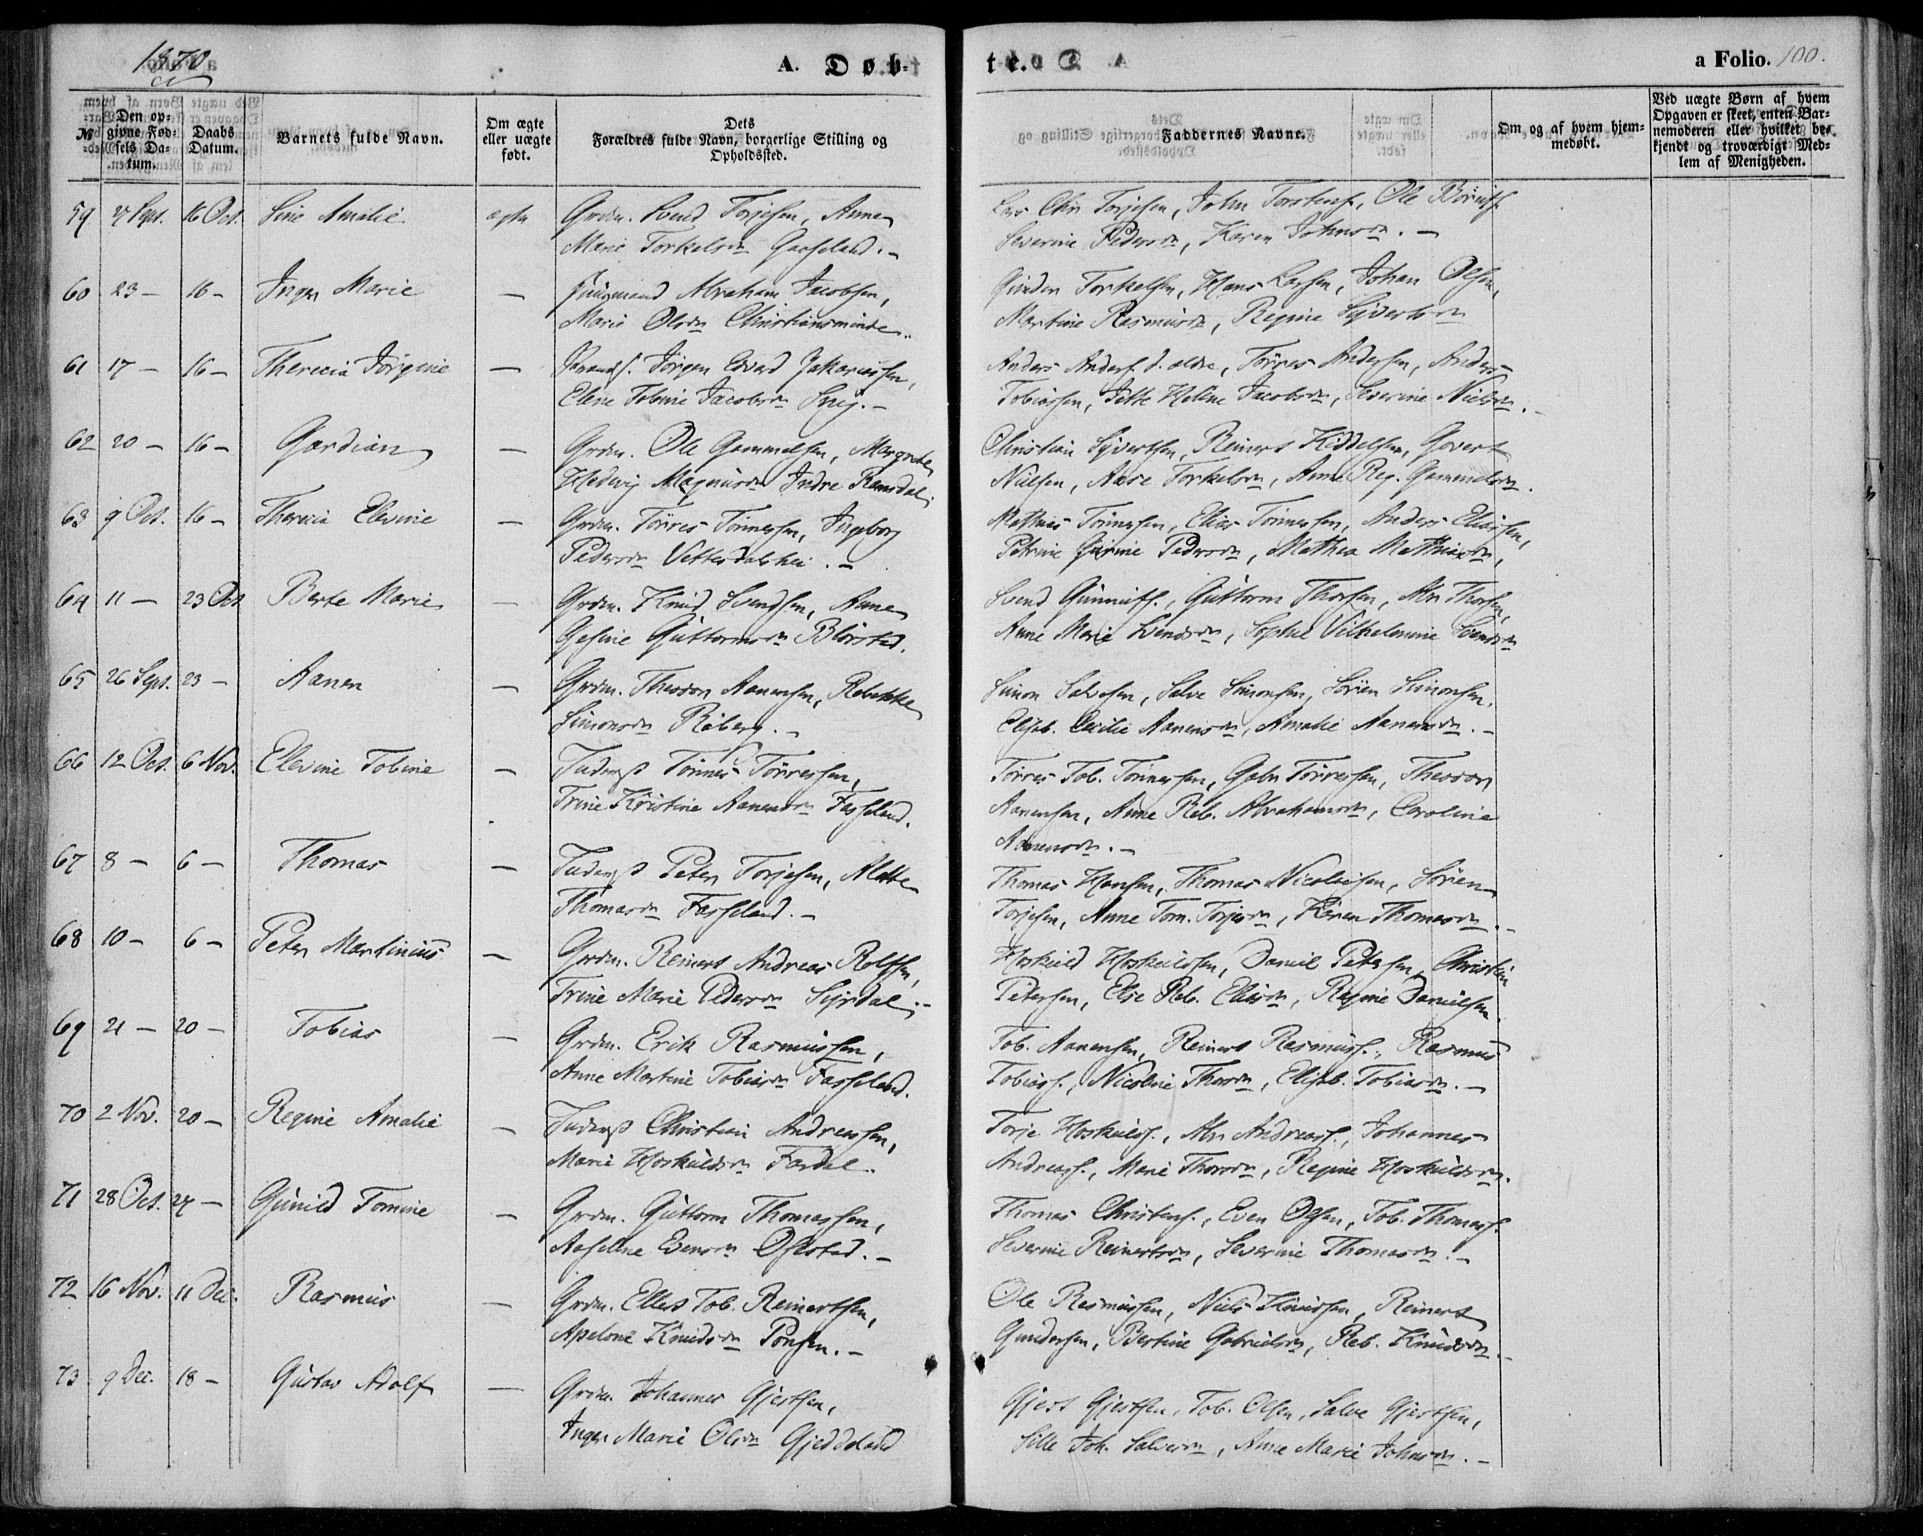 1870
A. Døb-
te.
a Folio. 100.
№
Den op-
givne Fød-
sels Da-
tum.
Daabs
Datum.
Barnets fulde Navn.
Om ægte
eller uægte
født.
Dets
Forældres fulde Navn, borgerlige Stilling og
Opholdssted.
Faddernes Navne.
Om og af hvem hjem-
medøbt.
Ved uægte Børn af hvem
Opgaven er skeet, enten Bar-
nemoderen eller hvilket be-
kjendt og troværdigt Med-
lem af Menigheden.
59 Sept. 16 Oct. Sine Amalie ægte Grdm. Svend Torjesen, Anne
Marie Torkelsdn
Lars Chr Torjesen, John Torstens., Ole
Severine Pedersdn, Karen Johnsdn. —
60 23 — 16 — Inger Marie — Abraham Jacobsen,
Marie Olsdn Christiansminde.
Gunder Torkelsen, Hans Larsen, Johan Olsen,
Martine Rasmusdn, Regine Syvertsdn
61 17 — 16 — Therecia Jørgine — Jørgen Edvard Zakariassen,
Elene Tobine Jacobsdn
Anders Anders. d. ældre, Tørres Andersen, Anders
Tobiassen, Jette Helene Jacobsdn, Severine Nielsdn.
62 20 — 16 — Gardian — Grdm. Ole Gammelsen, Margrete
Hedevig Magnusdn Indre Ramsdal.
Christian Syvertsen, Reinert Kiddelsen, Govert
Nielsen, Aase Torkelsdn, Anne Reg. Gammelsdn.
63 9 Oct. 16 — Therecia Elevine — Grdm. Tørres Tønnessen, Ingeborg
Pedersdn Vetterdalshei. —
Mathias Tønnesen, Elias Tønnessen, Anders Eliassen,
Petrine Gurine Pedersdn, Mathea Mathiasdn,
64 11 — 23 Oct Berte Marie — Grdm. Knud Svendsen, Anne
Gesine Guttormsdn
Svend Gunnufs., Guttorm Thorsen, Abr Thorsen,
Anne Marie Svendsdn, Sophie Vilhelmine Svendsdn
65 26 Sept. 23 — Aanen — Grdm. Theodor Aanensen, Rebekke
Simonsdn Røberg. —
Simon Salvesen, Salve Simonsen, Søren Simonsen,
Elisab. Cecilie Aanensdn, Amalie Aanensdn. —
66 12 Oct. 6 Nov. Elevine Tobine — Inderst Tønnes Tørresen,
Trine Kristine Aanensdn Fasseland.
Tørres Tob. Tønnesen, Gabr Tørresen, Theodor
Aanensen, Anne Reb. Abrahamsdn, Caroline
Aanensdn. —
67 8 — 6 — Thomas — Inderst Peter Torjesen, Mette
Thomasdn Fasseland. —
Thomas Hansen, Thomas Nicolaisen, Søren
Torjesen, Anne Tom. Torjesdn, Karen Thomasdn.
68 10 — 6 — Peter Martinius — Grdm. Reinert Andreas Rolfsen,
Trine Marie Pedersdn
Hoskuld Hoskuldsen, Daniel Petersen, Christian
Petersen, Else Reb. Eliasdn, Regine Danielsen.
69 21 — 20 — Tobias — Grdm. Erik Rasmussen,
Anne Martine Tobiasdn Fasseland.
Tob. Aanensen, Reinert Rasmuss., Rasmus
Tobiass., Nicoline Thorsdn, Elisab. Tobiasdn. —
70 2 Nov. 20 — Regine Amalie — Inderst Christian Andreassen,
Marie Hoskuldsdn Fardal.
Torje Hoskulds., Abr Andreass., Johannes
Andreass., Marie Thorsdn, Regine Hoskuldsdn.
71 28 Oct. 27 — Gunild Tomine — Grdm. Guttorm Thomassen,
Aaselene Evensdn Øfstad. —
Thomas Christens., Even Olsen, Tob. Thomass.
Severine Reinertsdn, Severine Thomasdn. —
72 16 Nov. 11 Dec. Rasmus — Grdm. Ellert Tob. Reinertsen,
Apelone Knudsdn —
Ole Rasmussen, Niels Knudsen, Reinert
Gundersen, Bertine Gabrielsdn, Reb. Knudsdn. —
73 9 Dec. 18 — Gustav Adolf — Grdm. Johannes Gjertsen,
Inger Marie Olsdn
Gjert Gjertsen, Tob. Olsen, Salve Gjertsen,
Sille Joh. Salvesdn, Anne Marie Johnsdn. —